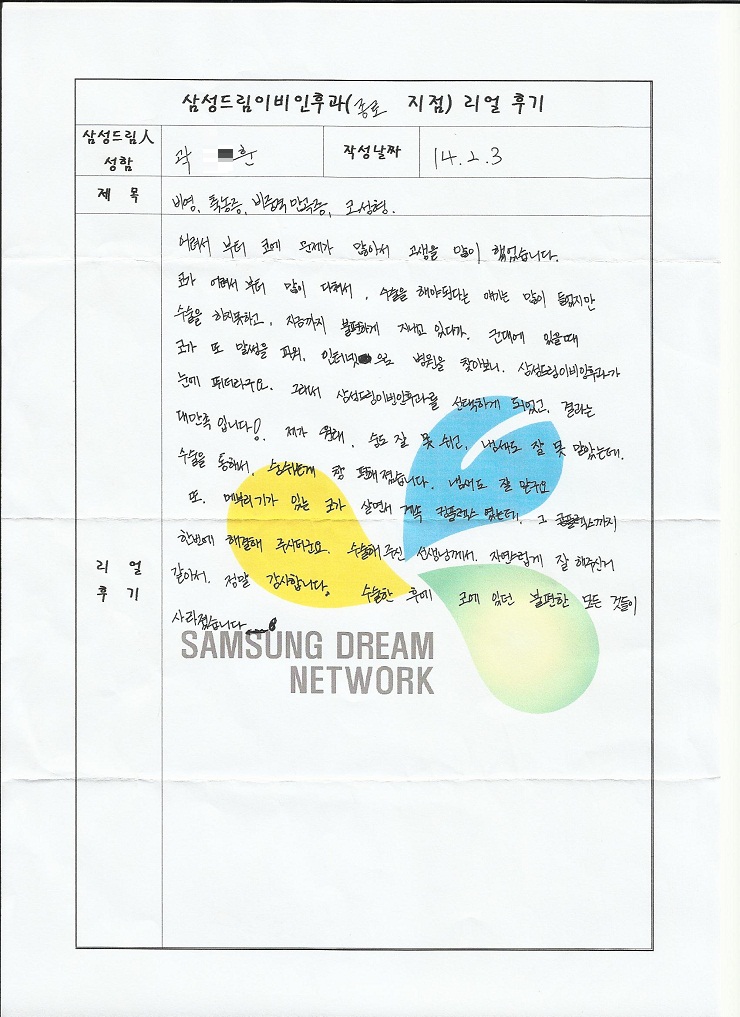 삼성드림이비인후과(종로 지점) 리얼 후기
삼성드림人 성함
곽 훈
작성날짜
14.2.3
제 목
비염, 축농증, 비중격만곡증, 코성형.
리 얼 후 기
어려서 부터 코에 문제가 많아서 고생을 많이 했었습니다.
코가 어려서 부터 많이 다쳐서, 수술을 해야된다는 얘기는 많이 들었지만
수술을 하지못하고, 지금까지 불편하게 지내고 있다가. 군대에 있을때
코가 또 말썽을 피워, 인터넷으로 병원을 찾아보니, 삼성드림이빈인후과가
눈에 띄더라구요. 그래서 삼성드림이빈인후과를 선택하게 되었고, 결과는
대만족 입니다! 제가 원래, 숨도 잘 못 쉬고, 냄새도 잘 못 맡았는데.
수술을 통해서, 숨쉬는게 참 편해졌습니다. 냄새도 잘 맡구요
또. 메부리기가 있는 코가 살면서 계속 컴플렉스 였는데, 그 콤플렉스까지
한번에 해결해 주시더군요. 수술해주신 선생님께서. 자연스럽게 잘 해주신거
같아서. 정말 감사합니다. 수술한 후에 코에 있던 불편한 모든 것들이
사라졌습니다
SAMSUNG DREAM
NETWORK